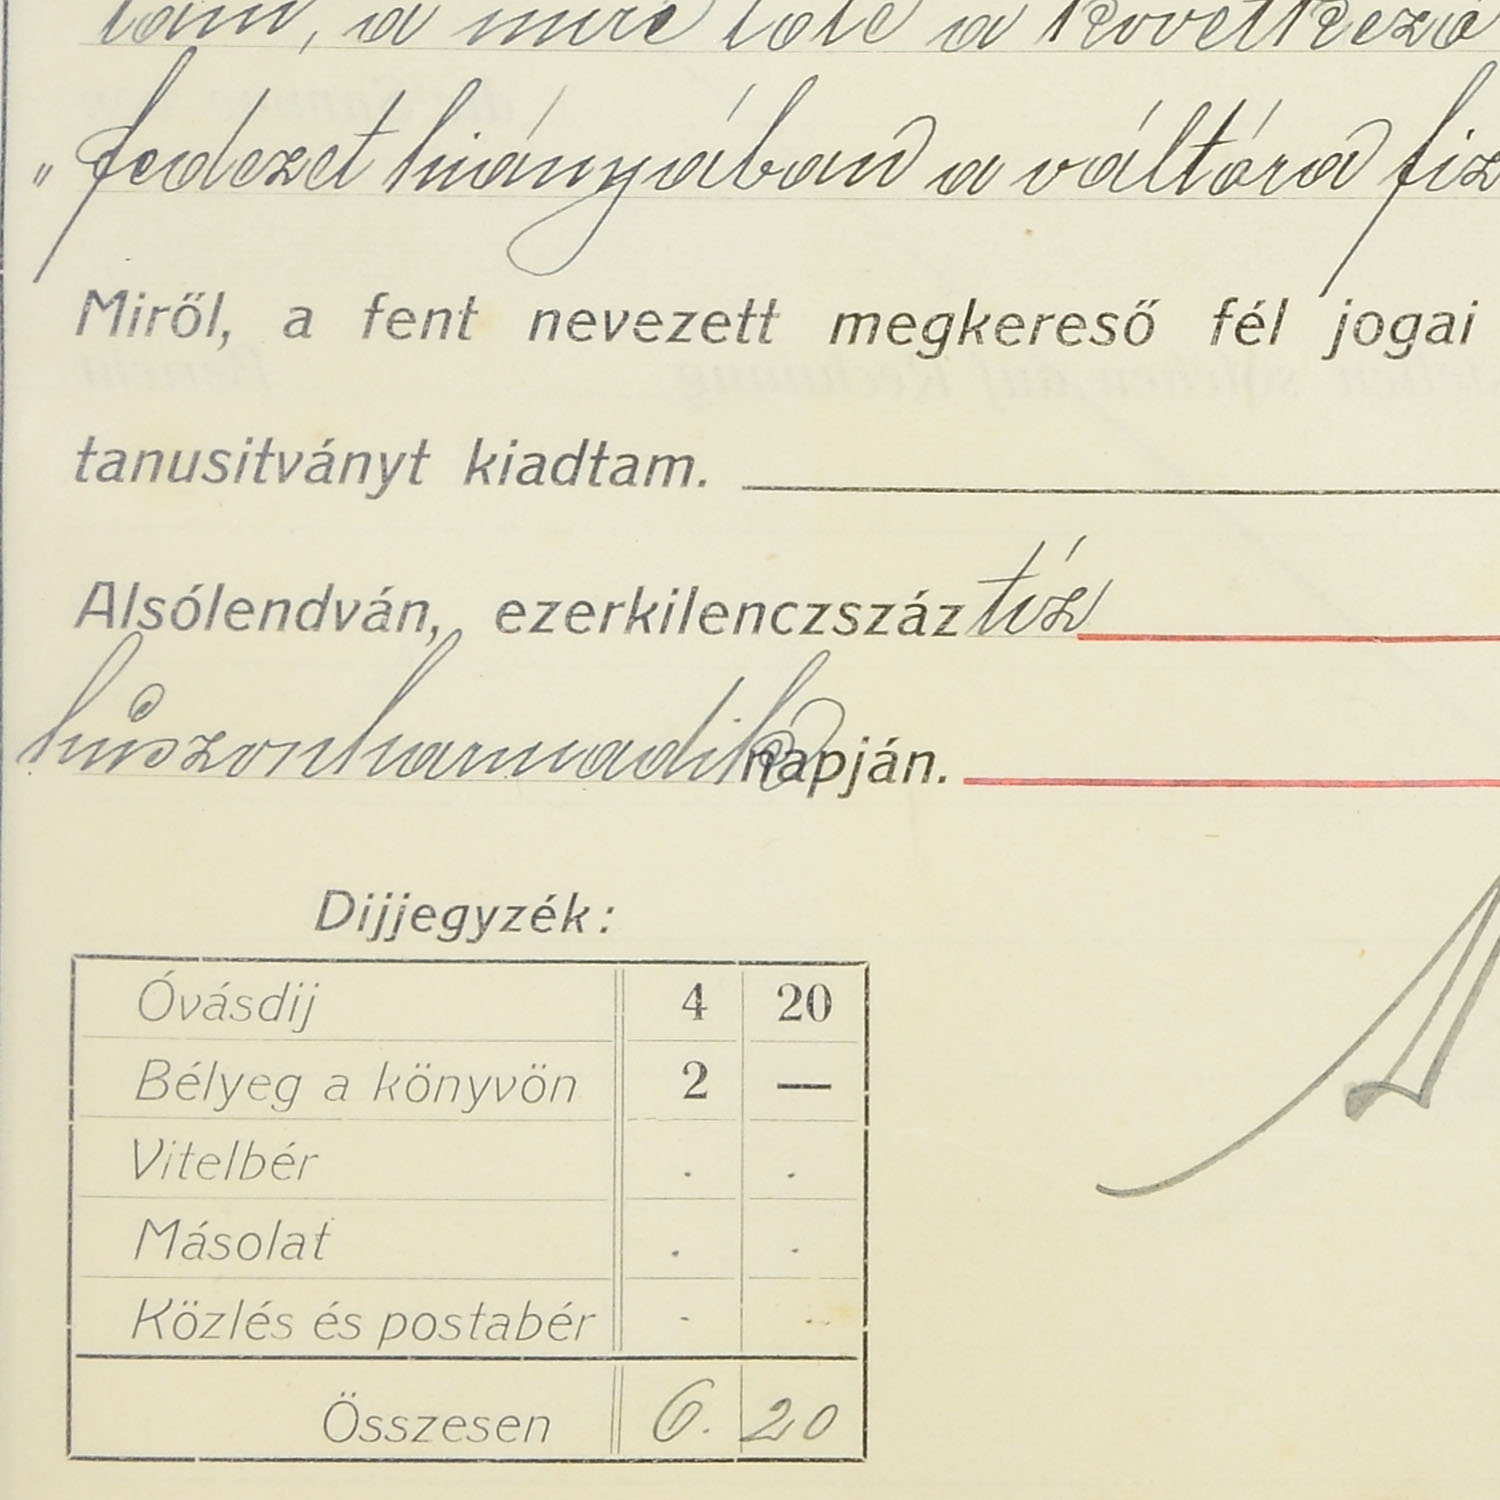 tam, a mire tőle a következő
„fedezet hiányában a váltóra fiz
Miről, a fent nevezett megkereső fél jogai
tanusitványt kiadtam.
Alsólendván, ezerkilenczszáz tíz
huszonharmadik napján.
Dijjegyzék:
Óvásdij 4 20
Bélyeg a könyvön 2 —
Vitelbér . .
Másolat . .
Közlés és postabér - ..
Összesen 6. 20